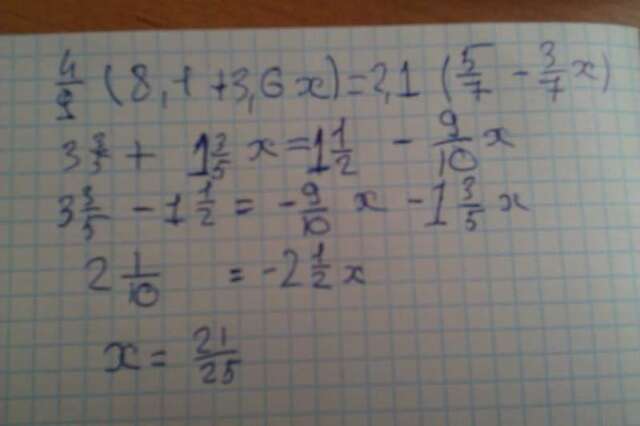 4/9 (8,1+3,6x)=2,1 (5/7 - 3/7x)
3 3/5 + 1 3/5 x = 1 1/2 - 9/10 x
3 3/5 - 1 1/2 = - 9/10 x - 1 3/5 x
2 1/10 = -2 1/2 x
x = 21/25